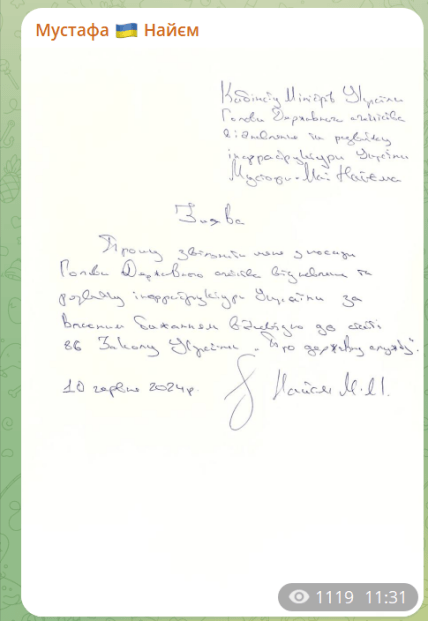 Мустафа 🇺🇦 Найєм
Кабінету Міністрів України
Голови Державного агентства
відновлення та розвитку
інфраструктури України
Мустафи-Масі Найєма
Заява
Прошу звільнити мене з посади
Голови Державного агентства відновлення та
розвитку інфраструктури України за
власним бажанням відповідно до статті
86 Закону України „Про державну службу“.
10 червня 2024р.
Найєм М.М.
1119 11:31